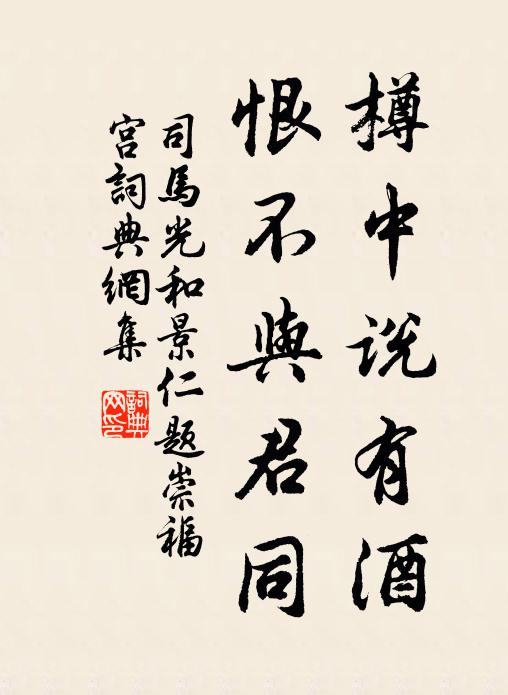 樽中说有酒
恨不與君同
司馬光和景仁题崇福
宫詞典網集
詞典
网印